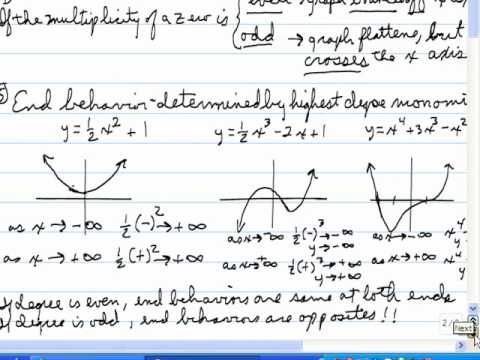 If the multiplicity of a zero is
odd → graph flattens, but
crosses the x axis
End behavior - determined by highest degree monomi
y = ½x² + 1
y = ½x³ - 2x + 1
y = x⁴ + 3x³ - x²
as x → -∞ ½(-)² → +∞
as x → +∞ ½(+)² → +∞
as x → -∞ ½(-)³ → -∞
y → -∞
as x → +∞ ½(+)³ → +∞
y → +∞
as x → -∞ x⁴
y
as x → +∞ x⁴
y
If degree is even, end behaviors are same at both ends
If degree is odd, end behaviors are opposites!!
Next